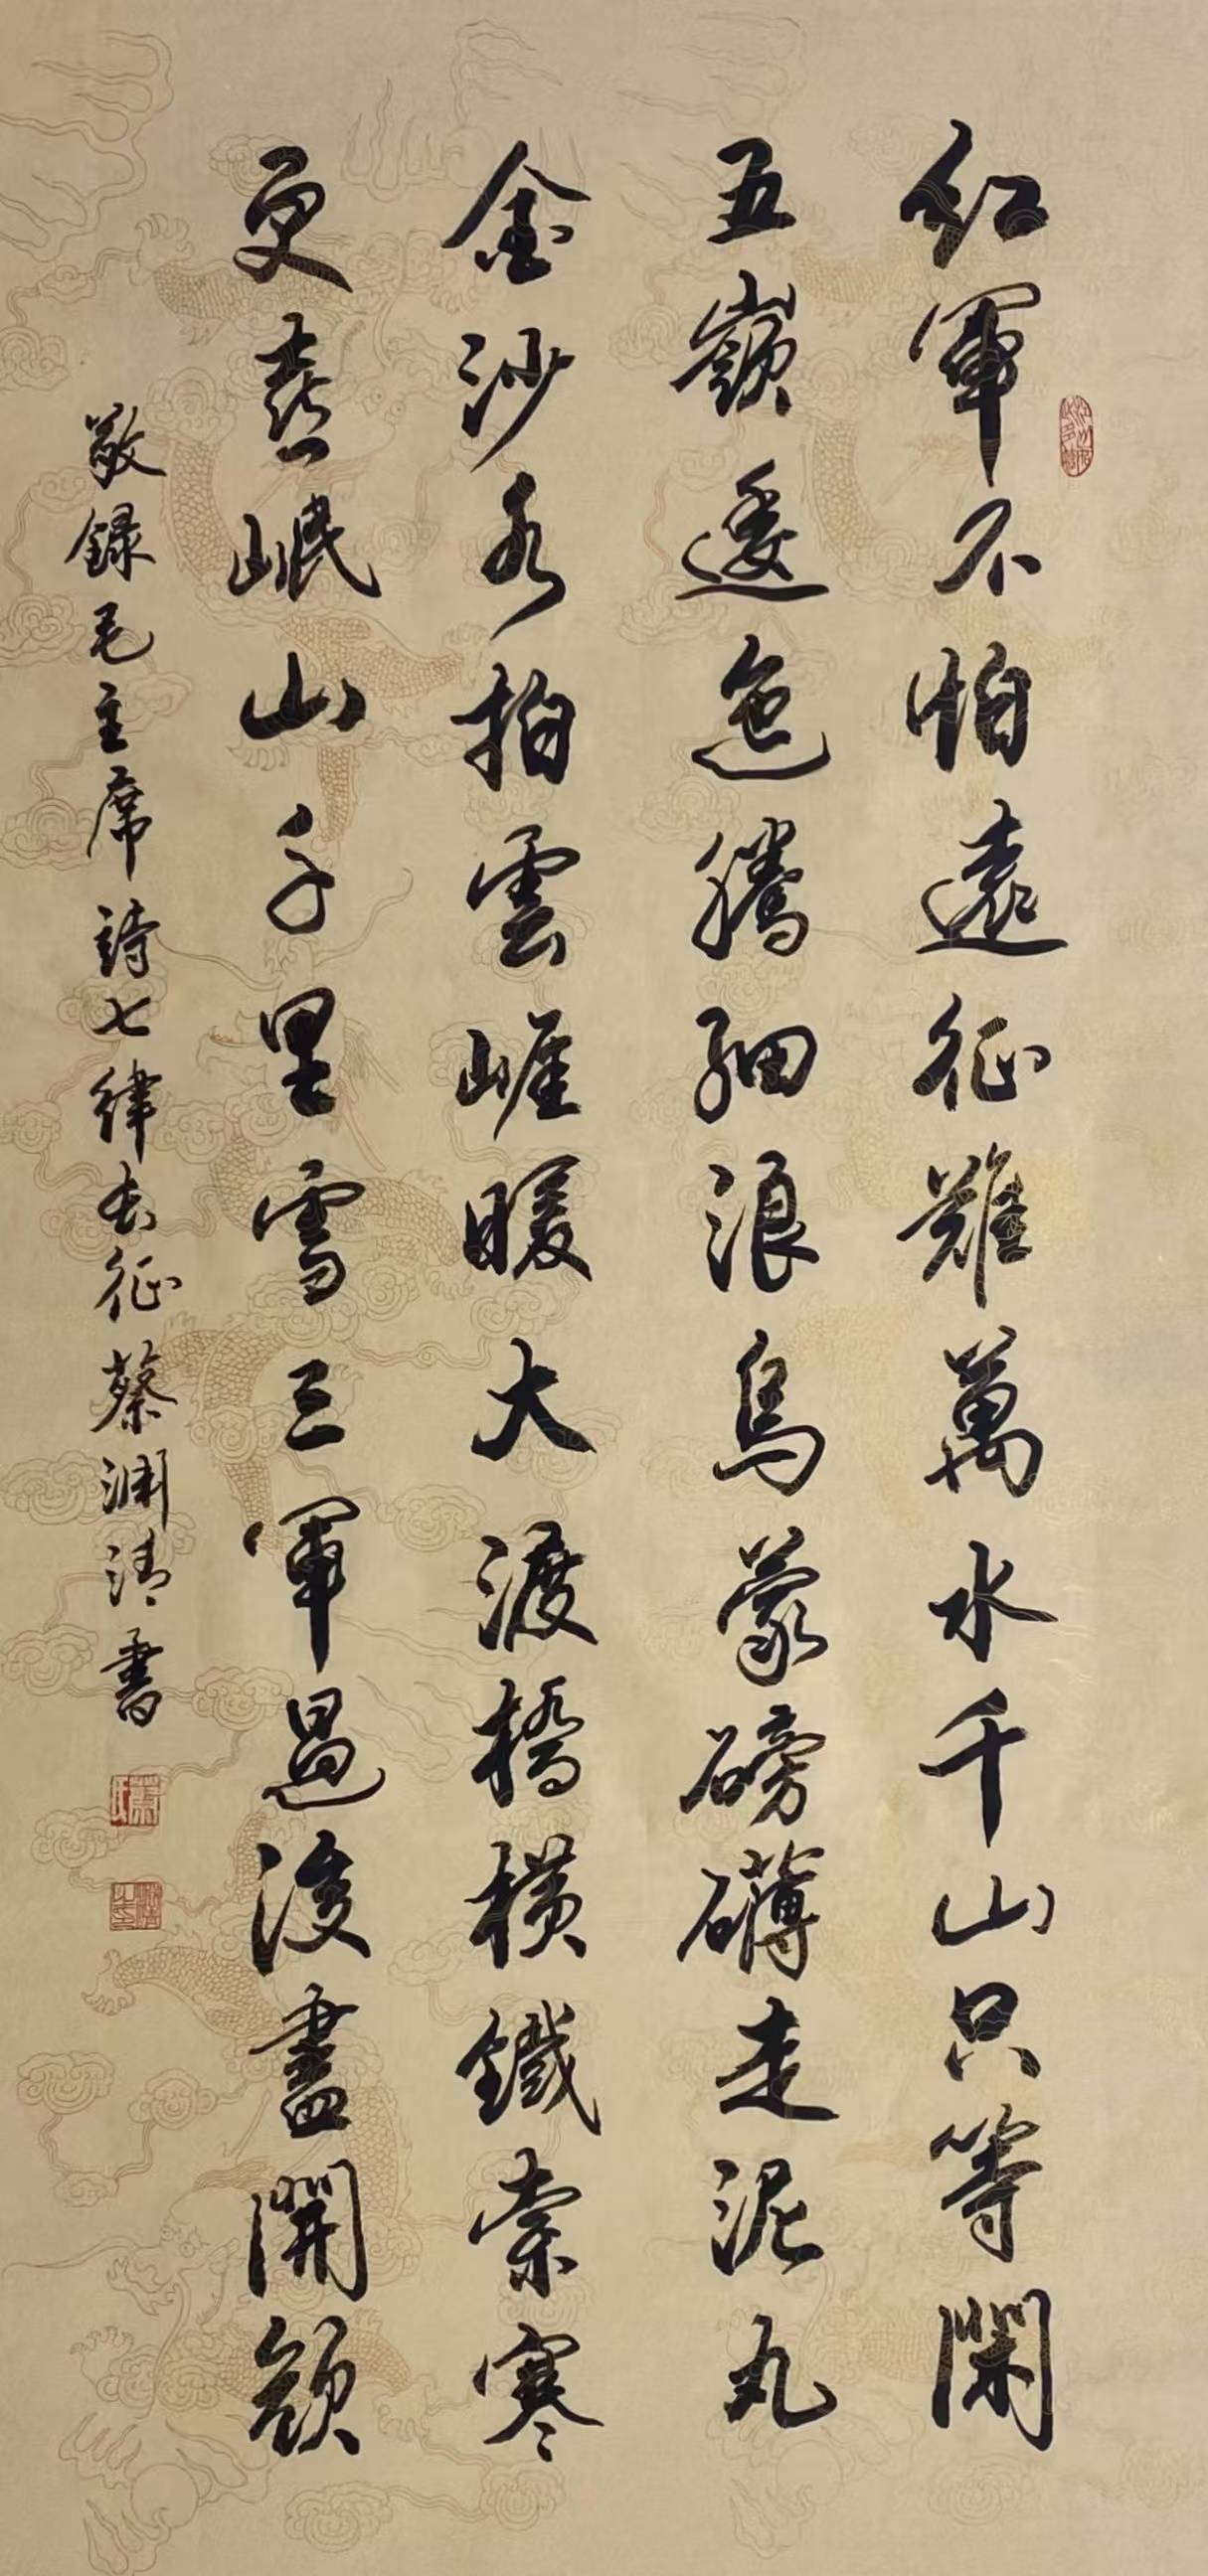 紅軍不怕遠征難萬水千山只等閑
五嶺逶迤騰細浪烏蒙磅礴走泥丸
金沙水拍雲崖暖大渡橋橫鐵索寒
更喜岷山千里雪三軍過後盡開顏
敬錄毛主席詩七律長征蔡渊清書